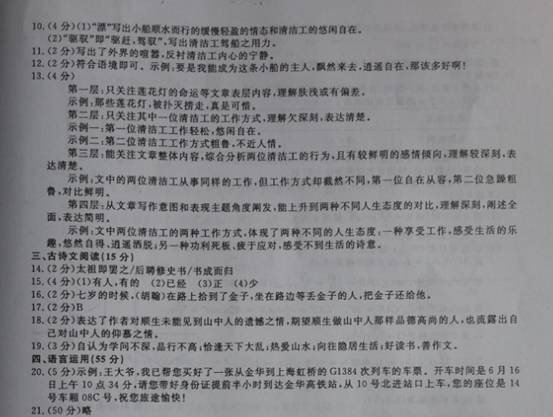 10.(4分)(1)“漂”写出小船顺水而行的缓慢轻盈的情态和清洁工的悠闲自在。
(2)“驱驭”即“驱赶,驾驭”,写出清洁工驾船之用力。
11.(2分)写出了外界的喧嚣,反衬清洁工内心的宁静。
12.(2分)符合语境即可。示例:要是我能成为这条小船的主人,飘然来去,逍遥自在,那该多好啊!
13.(4分)
第一层:只关注莲花灯的命运等文章表层内容,理解肤浅或有偏差。
示例:那些莲花灯,被扑灭捞走,真是可惜。
第二层:只关注其中一位清洁工的工作方式,理解欠深刻,表达清楚。
示例一:第一位清洁工工作轻松,悠闲自在。
示例二:第二位清洁工工作方式粗鲁,不近人情。
第三层:能关注文章整体内容,综合分析两位清洁工的行为,且有较鲜明的感情倾向,理解较深刻,表
达清楚。
示例:文中的两位清洁工从事同样的工作,但工作方式却截然不同,第一位自在从容,第二位急躁粗
鲁,对比鲜明。
第四层:从文章写作意图和表现主题角度阐发,能上升到两种不同人生态度的对比,理解深刻,阐述全
面,表达简明。
示例:文中两位清洁工的两种工作方式,体现了两种不同的人生态度:一种享受工作,感受生活的乐
趣,悠然自得、逍遥洒脱;另一种功利死板、疲于应对,感受不到生活的诗意。
三、古诗文阅读(15分)
14.(2分)太祖即罢之/后聘修史书/书成而归
15.(4分)(1)有人,有的 (2)已经 (3)正 (4)少
16.(2分)七岁的时候,(胡翰)在路上拾到了金子,坐在路边等丢金子的人,把金子还给他。
17.(2分)B
18.(2分)表达了作者对顺生未能见到山中人的遗憾之情,期望顺生做山中人那样品德高尚的人,也流露出自
己对山中人的仰慕之情。
19.(3分)自认为学问不深、品行不高;恰逢天下大乱;热爱山水;向往隐居生活;好读书,善作文。
四、语言运用(55分)
20.(5分)示例:王大爷,我已帮您买好了一张从金华到上海虹桥的G1384次列车的车票。开车时间是6月16
日上午10点34分,请您带好身份证提前半小时到达金华高铁站,从10号北进站口上车,您的座位是14
号车厢08C号,祝您旅途愉快!
21.(50分)略